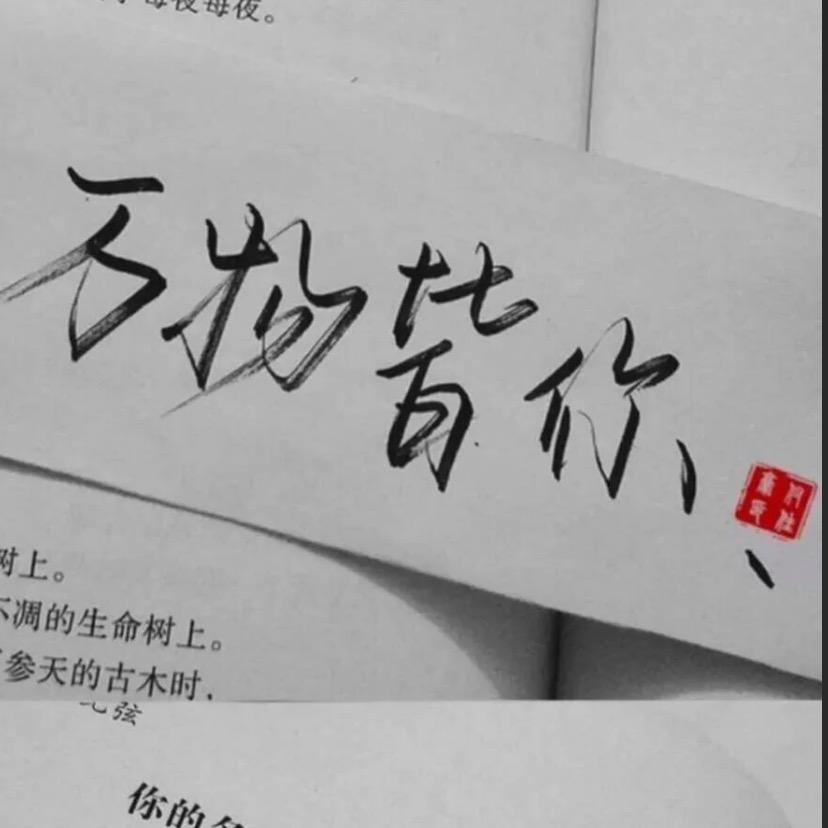 每夜每夜。
万物皆你
树上。
不凋的生命树上。
参天的古木时，
弦
你的